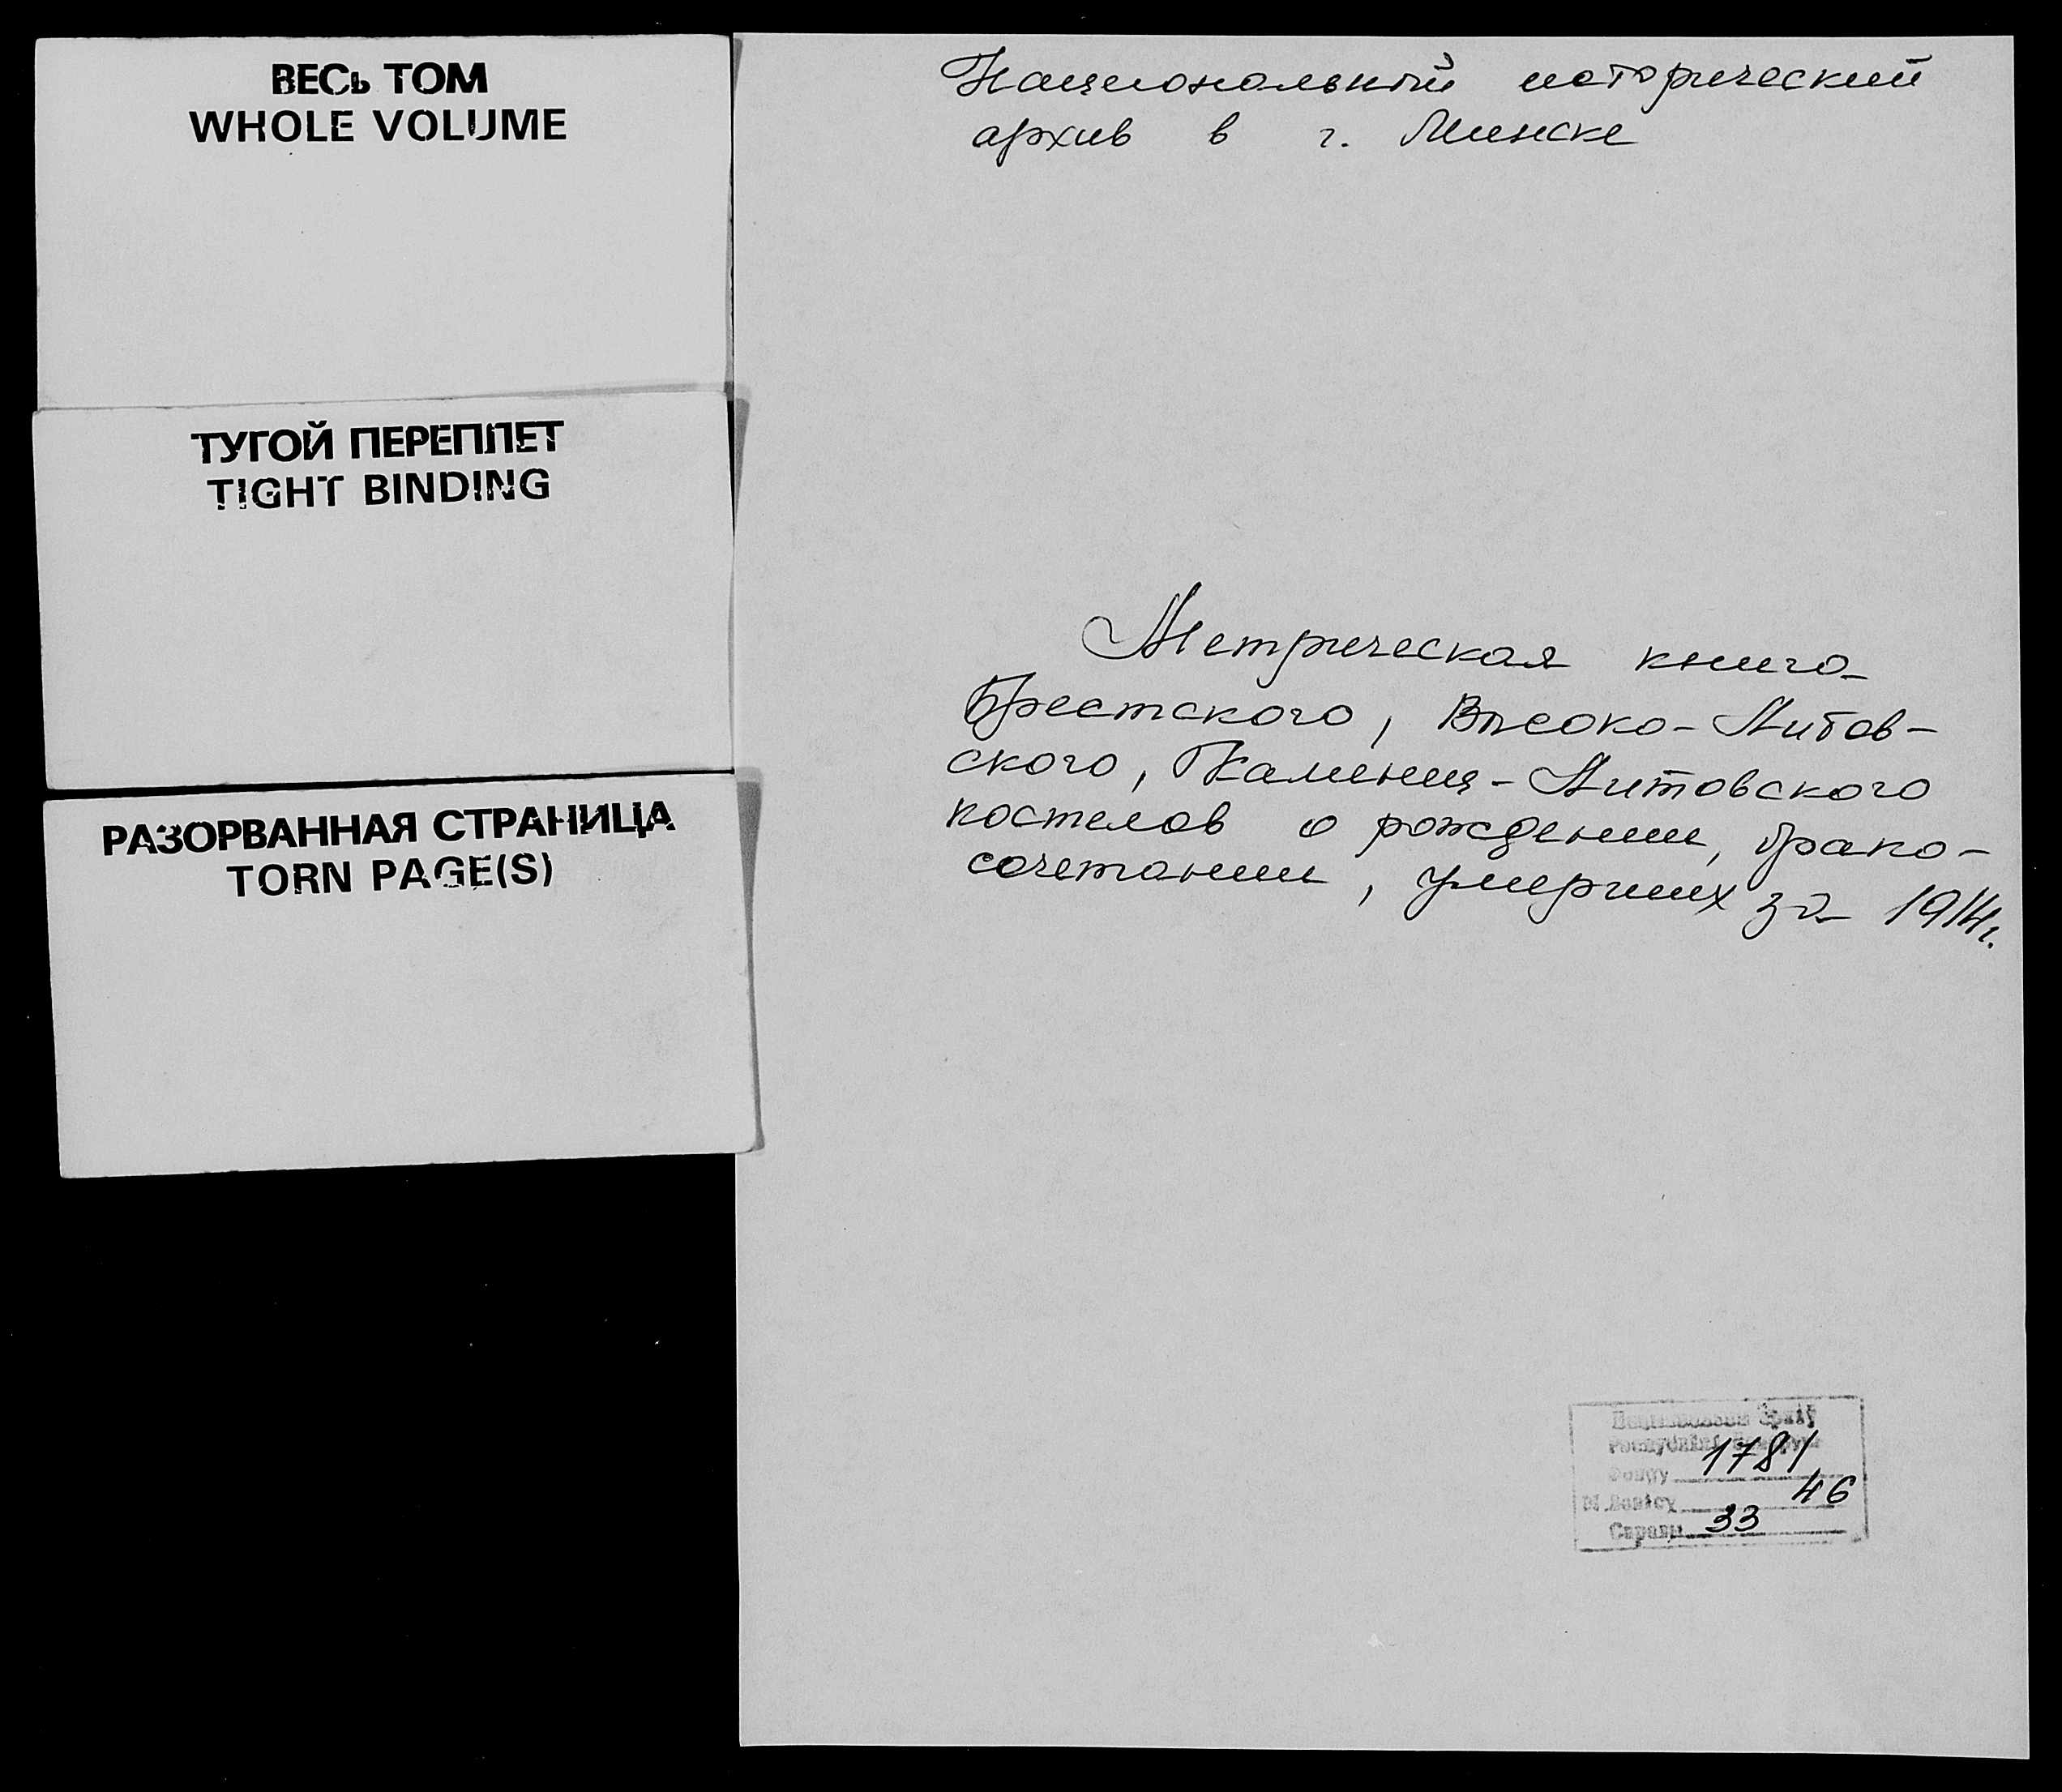 ВЕСЬ ТОМ
WHOLE VOLUME
ТУГОЙ ПЕРЕПЛЕТ
TIGHT BINDING
РАЗОРВАННАЯ СТРАНИЦА
TORN PAGE(S)
Национальный исторический
архив в г. Минске
Метрическая книга
Брестского, Высоко-Литов-
ского, Каменец-Литовского
костелов о рождении, брако-
сочетании, умерших за 1914г.
Фонду 1781
46
Справы 33